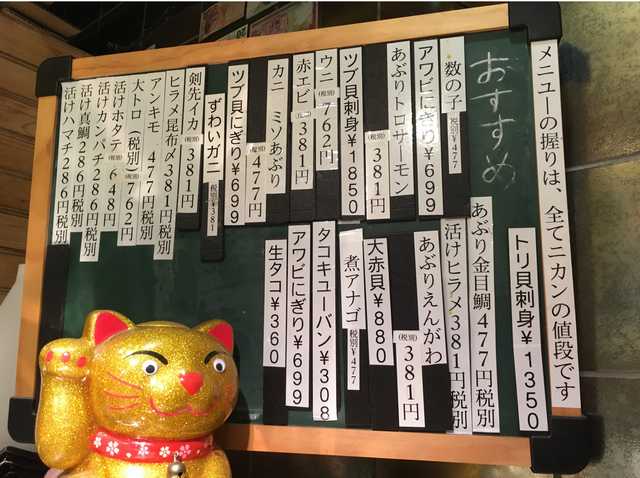 メニューの握りは、全てニカンの値段です
おすすめ
トリ貝刺身¥1350
数の子 税別¥477
アワビにぎり¥699
あぶりトロサーモン(税別)381円
ツブ貝刺身¥1850
ウニ(税別)762円
赤エビ(税別)381円
カニミソあぶり(税別)477円
ツブ貝にぎり¥699
ずわいガニ 税別¥381
剣先イカ(税別)381円
ヒラメ昆布〆381円税別
アンキモ 477円税別
大トロ(税別)762円
活けホタテ(税別)648円
活けカンパチ286円税別
活け真鯛286円税別
活けハマチ286円税別
あぶり金目鯛477円税別
活けヒラメ381円税別
あぶりえんがわ(税別)381円
大赤貝¥880
煮アナゴ 税別¥477
タコキューバン¥308
アワビにぎり¥699
生タコ¥360